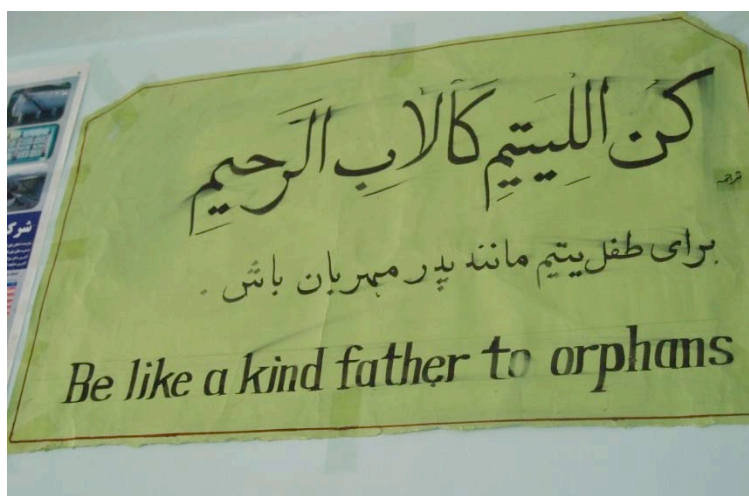 كن اللیتیمِ كَالاَبِ الَرحیمِ
ترجمه
برای طفل یتیم مانند پدر مهربان باش .
Be like a kind father to orphans
شرک